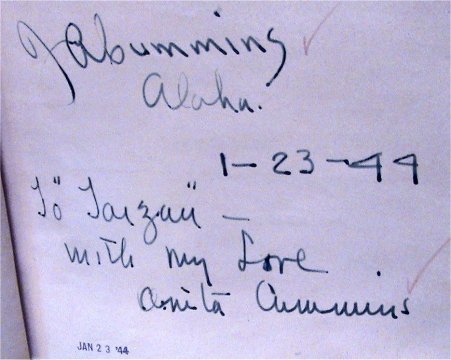 Aloha.
1-23-44
To "Tarzan" –
with my Love
Anita Cummins
JAN 23 '44